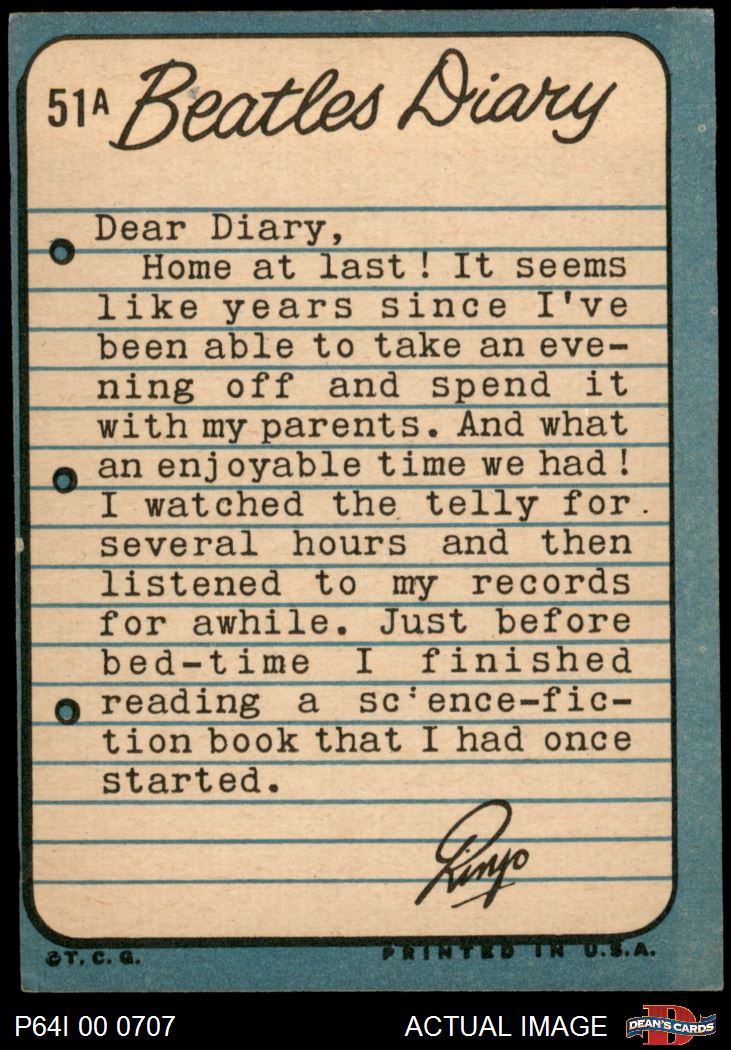 51A Beatles Diary
Dear Diary,
Home at last! It seems
like years since I've
been able to take an eve-
ning off and spend it
with my parents. And what
an enjoyable time we had!
I watched the telly for.
several hours and then
listened to my records
for awhile. Just before
bed-time I finished
reading a science-fic-
tion book that I had once
started.
Ringo
©T.C.G. PRINTED IN U.S.A.
P64I 00 0707 ACTUAL IMAGE DEAN'S CARDS